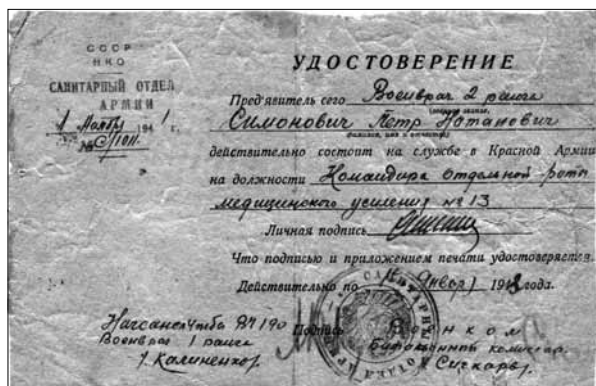 СССР
НКО
САНИТАРНЫЙ ОТДЕЛ
АРМИИ
1 Ноября 1941 г.
№ С/1011
УДОСТОВЕРЕНИЕ
Пред'явитель сего Военврач 2 ранга
Симонович Петр Натанович
(фамилия, имя и отчество)
действительно состоит на службе в Красной Армии
на должности Командира отдельной роты
медицинского усиления № 13
Личная подпись
Что подписью и приложением печати удостоверяется.
Действительно по 1 Января 194 года.
Начсанотдела 87190 Подпись Военком
Военврач 1 ранга Батальонный комиссар
/Калиненко/